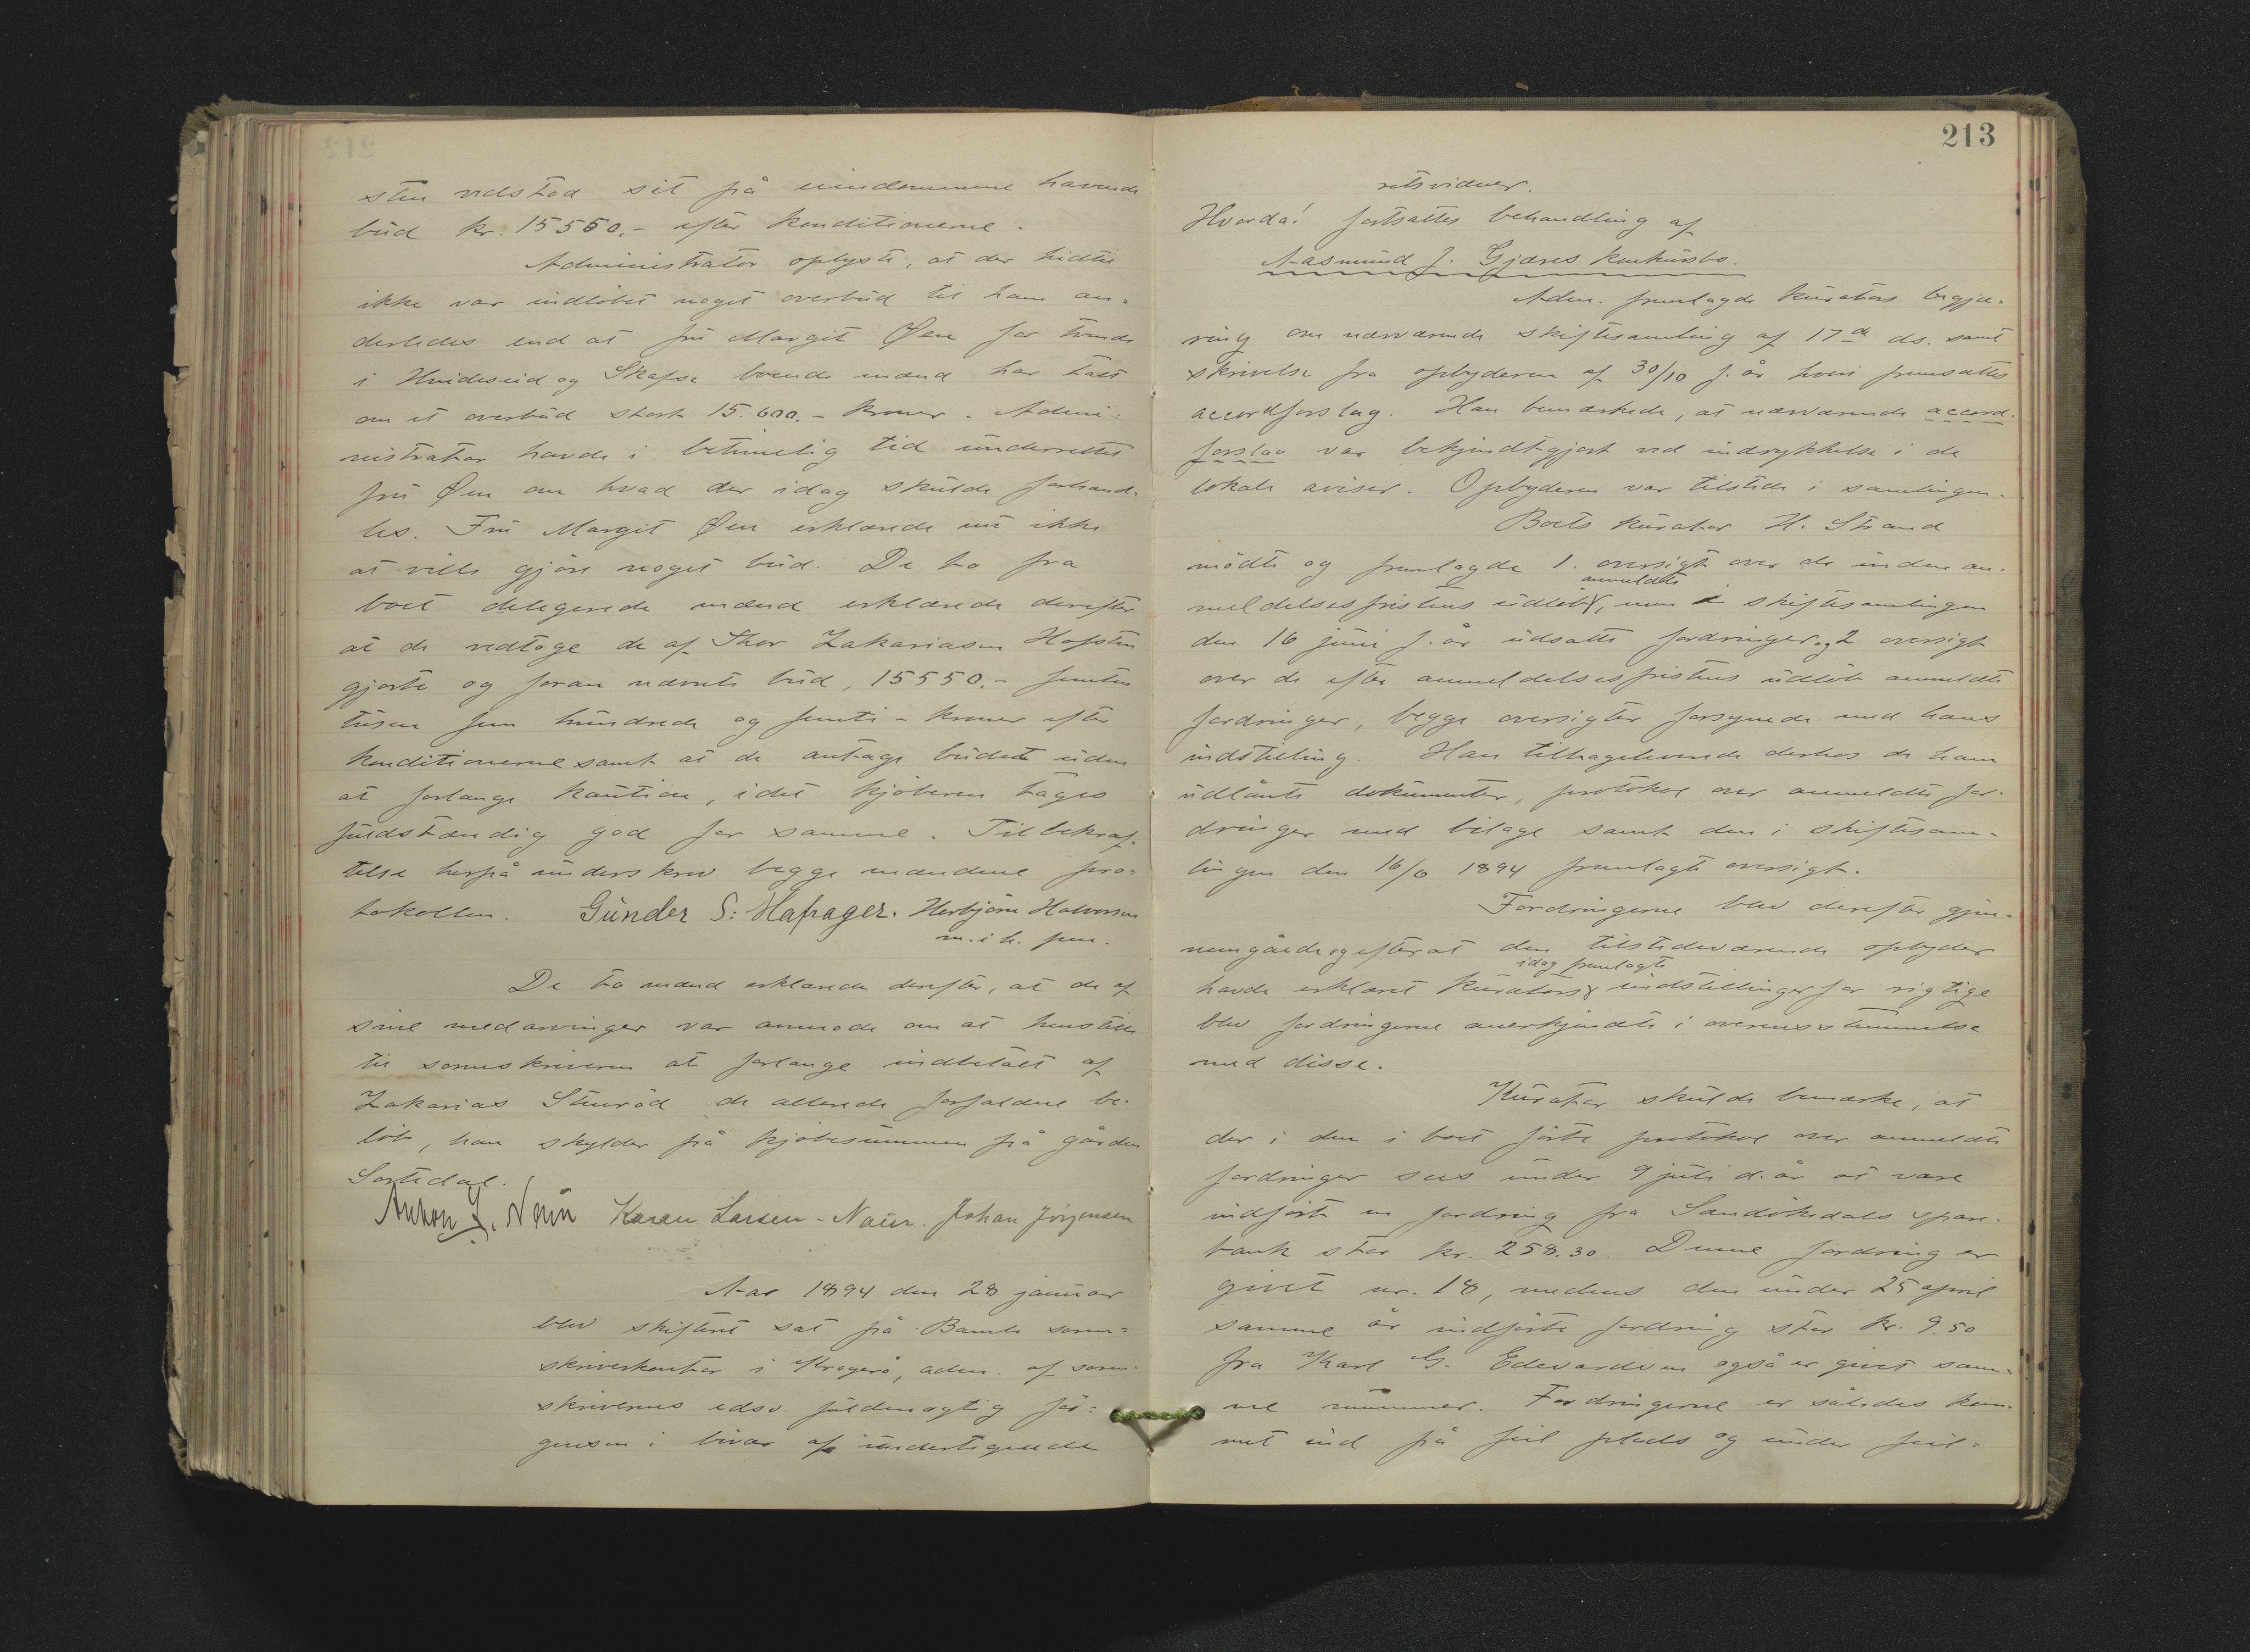 sten vedstod sit på eiendommene havende
bud kr. 15550.- efter konditionerne.
Administrator oplyste, at der hidtil
ikke var indløbet noget overbud til ham an-
derledes end at fru Margit Øen for tvende
i Hvideseid og Skafse boende mænd har talt
om et overbud stort 15.600.- kroner. Admi-
nistrator havde i betimelig tid underrettet
fru Øen om hvad der idag skulde forhand-
les. Fru Margit Øen erklærede nu ikke
at ville gjøre noget bud. De to fra
boet delegerede mænd erklærede derefter
at de vedtoge de af Thor Zakariasen Hafsten
gjorte og foran nævnte bud, 15550.- femten
tusen fem hundrede og femti - kroner efter
konditionerne samt at de antage budet uden
at forlange kaution, idet kjøberen tages
fuldstændig god for samme. Til bekræf-
telse herpå underskrev begge mændene pro-
tokollen. Gunder S: Hafrager. Herbjørn Halvorsen
m. i h. pen.
De to mænd erklærede derefter, at de af
sine medarvinger var anmode om at henstille
til sorenskriveren at forlange indbetalt af
Zakarias Stenrød de allerede forfaldne be-
løb, han skylder på kjøbesummen på gården
Sortedal.
Anton L. Næun Karen Larsen-Naun. Johan Jørgensen
Aar 1894 den 28 januar
blev skifteret sat på Bamle soren-
skriverkontor i Kragerø, adm. af soren-
skriverens edsv. fuldmægtig Jør-
gensen i bivær af undertegnede
213
retsvidner.
Hvorda! fortsattes behandling af
Aasmund J. Gjæres konkursbo.
Adm. fremlagde kurators begjæ-
ring om nærværende skiftesamling af 17de ds. samt
skrivelse fra opbyderen af 30/10 f. år hvori fremsattes
accordforslag. Han bemærkede, at nærværende accord-
forslag var bekjendtgjort ved indrykkelse i de
lokale aviser. Opbyderen var tilstede i samlingen.
Boets kurator H. Strand
mødte og fremlagde 1. oversigt over de inden an-
anmeldte
meldelsesfristens udløb, men i skiftesamlingen
den 16 juni f. år udsatte fordringer og 2 oversigt
over de efter anmeldelsesfristens udløb anmeldte
fordringer, begge oversigter forsynede med hans
indstilling. Han tilbageleverede derhos de ham
udlånte dokumenter, protokol over anmeldte for-
dringer med bilage samt den i skiftesam-
lingen den 16/6 1894 fremlagte oversigt.
Fordringerne blev derefter gjen-
nemgåede og efterat den tilstedeværende opbyder
idag fremlagte
havde erklæret kurators indstillinger for rigtige
blev fordringerne anerkjendte i overensstemmelse
med disse.
Kurator skulde bemærke, at
der i den i boet førte protokol over anmeldte
fordringer sees under 9 juli d. år at være
indført en fordring fra Sandøkedals spare-
bank stor kr. 258.30. Denne fordring er
givet nr. 18, medens den under 25 april
samme år indførte fordring stor kr. 9.50
fra Karl G. Edvardsen også er givet sam-
me nummer. Fordringerne er således kom-
met ind på feil plads og under feil-